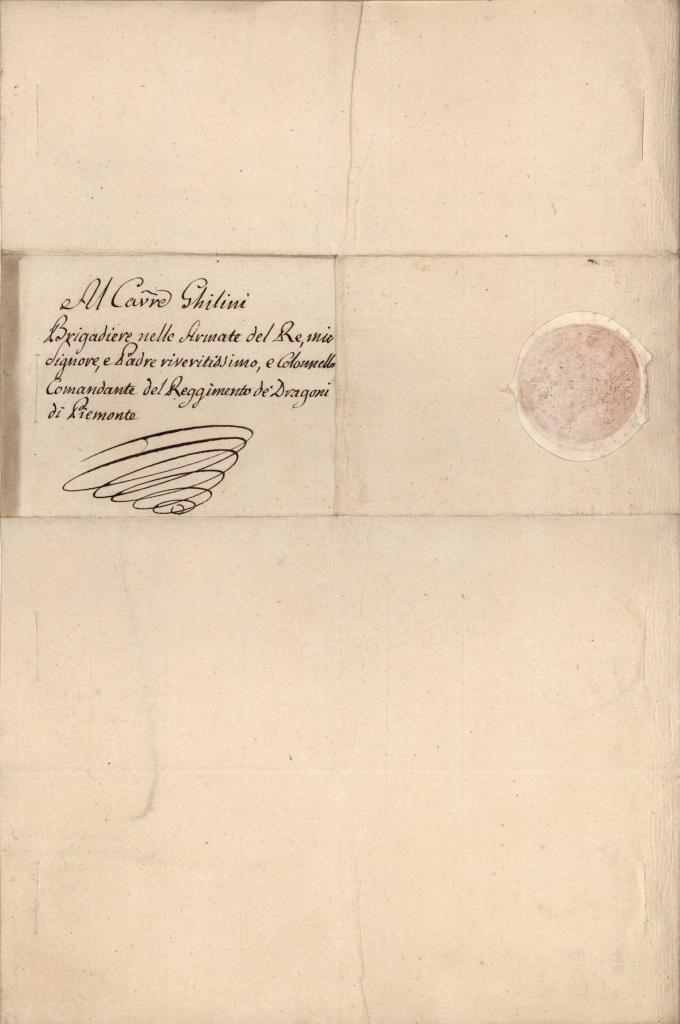 Al Cavre Ghilini
Brigadiere nelle Armate del Re, mio
Signore, e Padre riveritissimo, e Colonnello
Comandante del Reggimento de' Dragoni
di Piemonte